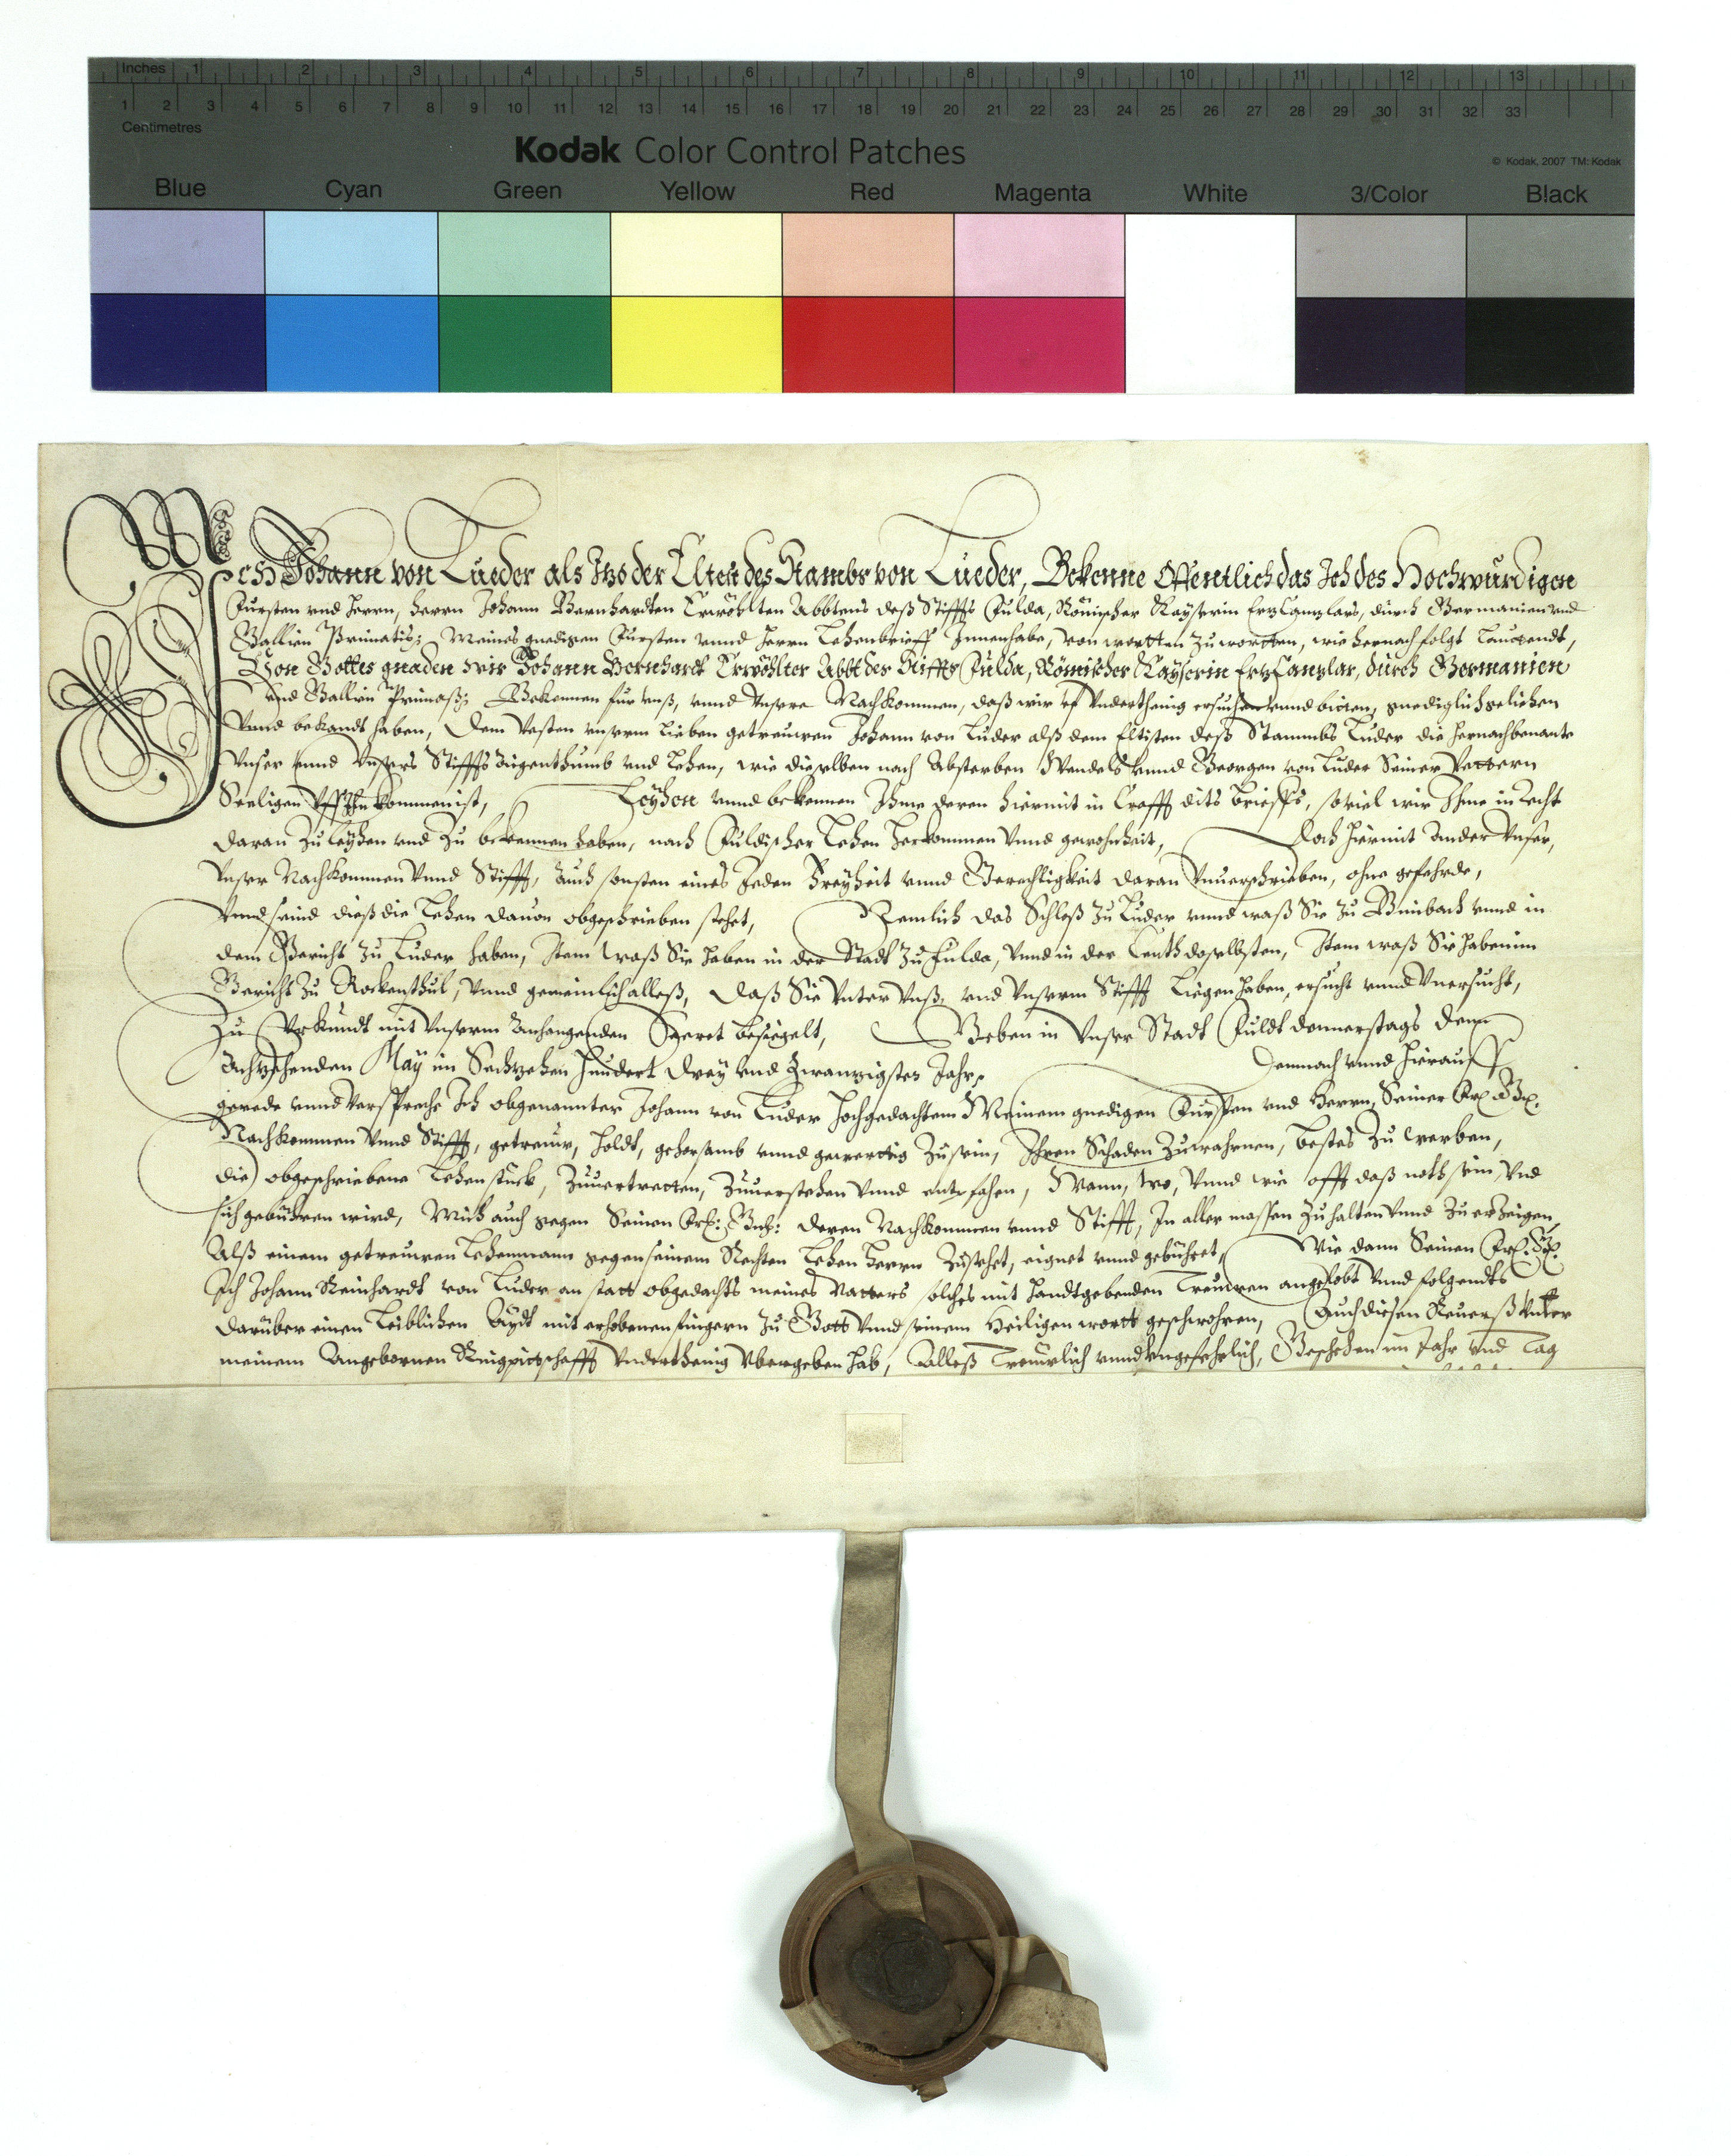 Inches 1 2 3 4 5 6 7 8 9 10 11 12 13
1 2 3 4 5 6 7 8 9 10 11 12 13 14 15 16 17 18 19 20 21 22 23 24 25 26 27 28 29 30 31 32 33
Centimetres
Kodak Color Control Patches
© Kodak, 2007 TM: Kodak
Blue Cyan Green Yellow Red Magenta White 3/Color Black
Ich Johann von Lueder als Itzo der Elter des Stambs von Lueder, Bekenne Offentlich das Ich des Hochwürdigen
Fürsten vnd Herrn, Herrn Johann Bernhardten Erwöhlten Abbtens deß Stiffts Fulda, Römischer Kayserin ErtzCantzlers, durch Germanien vnd
Gallien Primatis; Meines gnedigen Fürsten vnnd Herrn Lehenbrieff Innenhabe, von wortten zu wortten, wie hernach folgt Lautendt,
Von Gottes gnaden wir Johann Bernhardt Erwöhlter Abbt des Stiffts Fulda, Römischer Kayserin ErtzCantzlar, durch Germanien
vnd Gallien Primaß; Bekennen für vnß, vnnd Vnsere Nachkommen, daß wir vf Vnderthenig ersuchen vnnd bitten, gnediglich geliehen
Vnnd bekandt haben, dem Vesten vnserm Lieben getreuwen Johann von Luder alß dem Eltisten deß Stammbs Luder die hernachbenante
Vnser vnnd Vnsers Stiffts Eigenthumb vnd Lehen, wie dieselben nach Absterben Wendels vnnd Georgen von Luder Seiner Vettern
Seeligen Vff Ihn kommen ist, Leyhen vnnd bekennen Ihme deren hiermit in Crafft dits Brieffs, soviel wir Ihme in recht
daran zu leyhen vnd zu bekennen haben, nach Fuldischer Lehen Herkommen Vnnd gewohnheit, Doch hiermit ander Vnser,
Vnser Nachkommen Vnnd Stifft, auch sonsten eines Jeden Freyheit vnnd Gerechtigkeit daran Vnuerschrieben, ohne gefehrde,
Vnnd seind dieß die Lehen dauon obgeschrieben stehet, Nemlich das Schloß zu Luder vnnd waß Sie zu Bimbach vnnd in
dem Gericht zu Luder haben, Item waß Sie haben in der Stadt zu Fulda, Vnnd in der Centh doselbsten, Item waß Sie haben im
Gericht zu Rockenstul, Vnnd gemeinlich alleß, daß Sie Vnter Vnß, vnd Vnserm Stifft Liegen haben, ersucht vnnd Vnersucht,
Zu Vrkundt mit Vnserm Anhangenden Secret besiegelt, Geben in Vnser Stadt Fuldt donnerstags denn
Achtzehenden May im Sechzehen Hundert Drey vnd Zwanzigsten Jahr, Demnach vnnd hierauff
gerede vnnd Verspreche Ich obgenannter Johann von Luder hochgedachtem Meinem gnedigen Fürsten vnd Herrn, Seiner Frl. Gn.
Nachkommen Vnnd Stifft, getreuw, holdt, gehorsamb vnnd gewerttig zu sein, Ihren Schaden zu wahrnen, bestes zu werben,
die obgeschriebene Lehenstück, zuuertretten, zuuerstehen Vnnd entpfahen, Wann, wo, Vnnd wie offt daß noth sein, Vnd
sich gebühren wird, Mich auch gegen Seinen Frl: Gn: deren Nachkommen vnnd Stifft, In aller massen zu halten Vnnd zu erzeigen,
Alß einem getreuwen Lehenmann gegen seinem Rechten Lehen Herrn zustehet, eignet vnnd gebühret, Wie dann Seinen Frl. Gn.
Ich Johann Reinhardt von Luder an statt obgedachts meines Vatters solches mit handtgebenden Treuwen angelobt Vnnd folgendts
darüber einen Leiblichen Aydt mit erhobenen fingern zu Gott Vnnd seinem Heiligen wortt geschwohren, Auch diesen Reuerß Vnter
meinem Angebornen Ringpittschafft Vnderthenig Vbergeben hab, Alleß Treuwlich vnnd vngefehrlich, Geschehen im Jahr vnd Tag